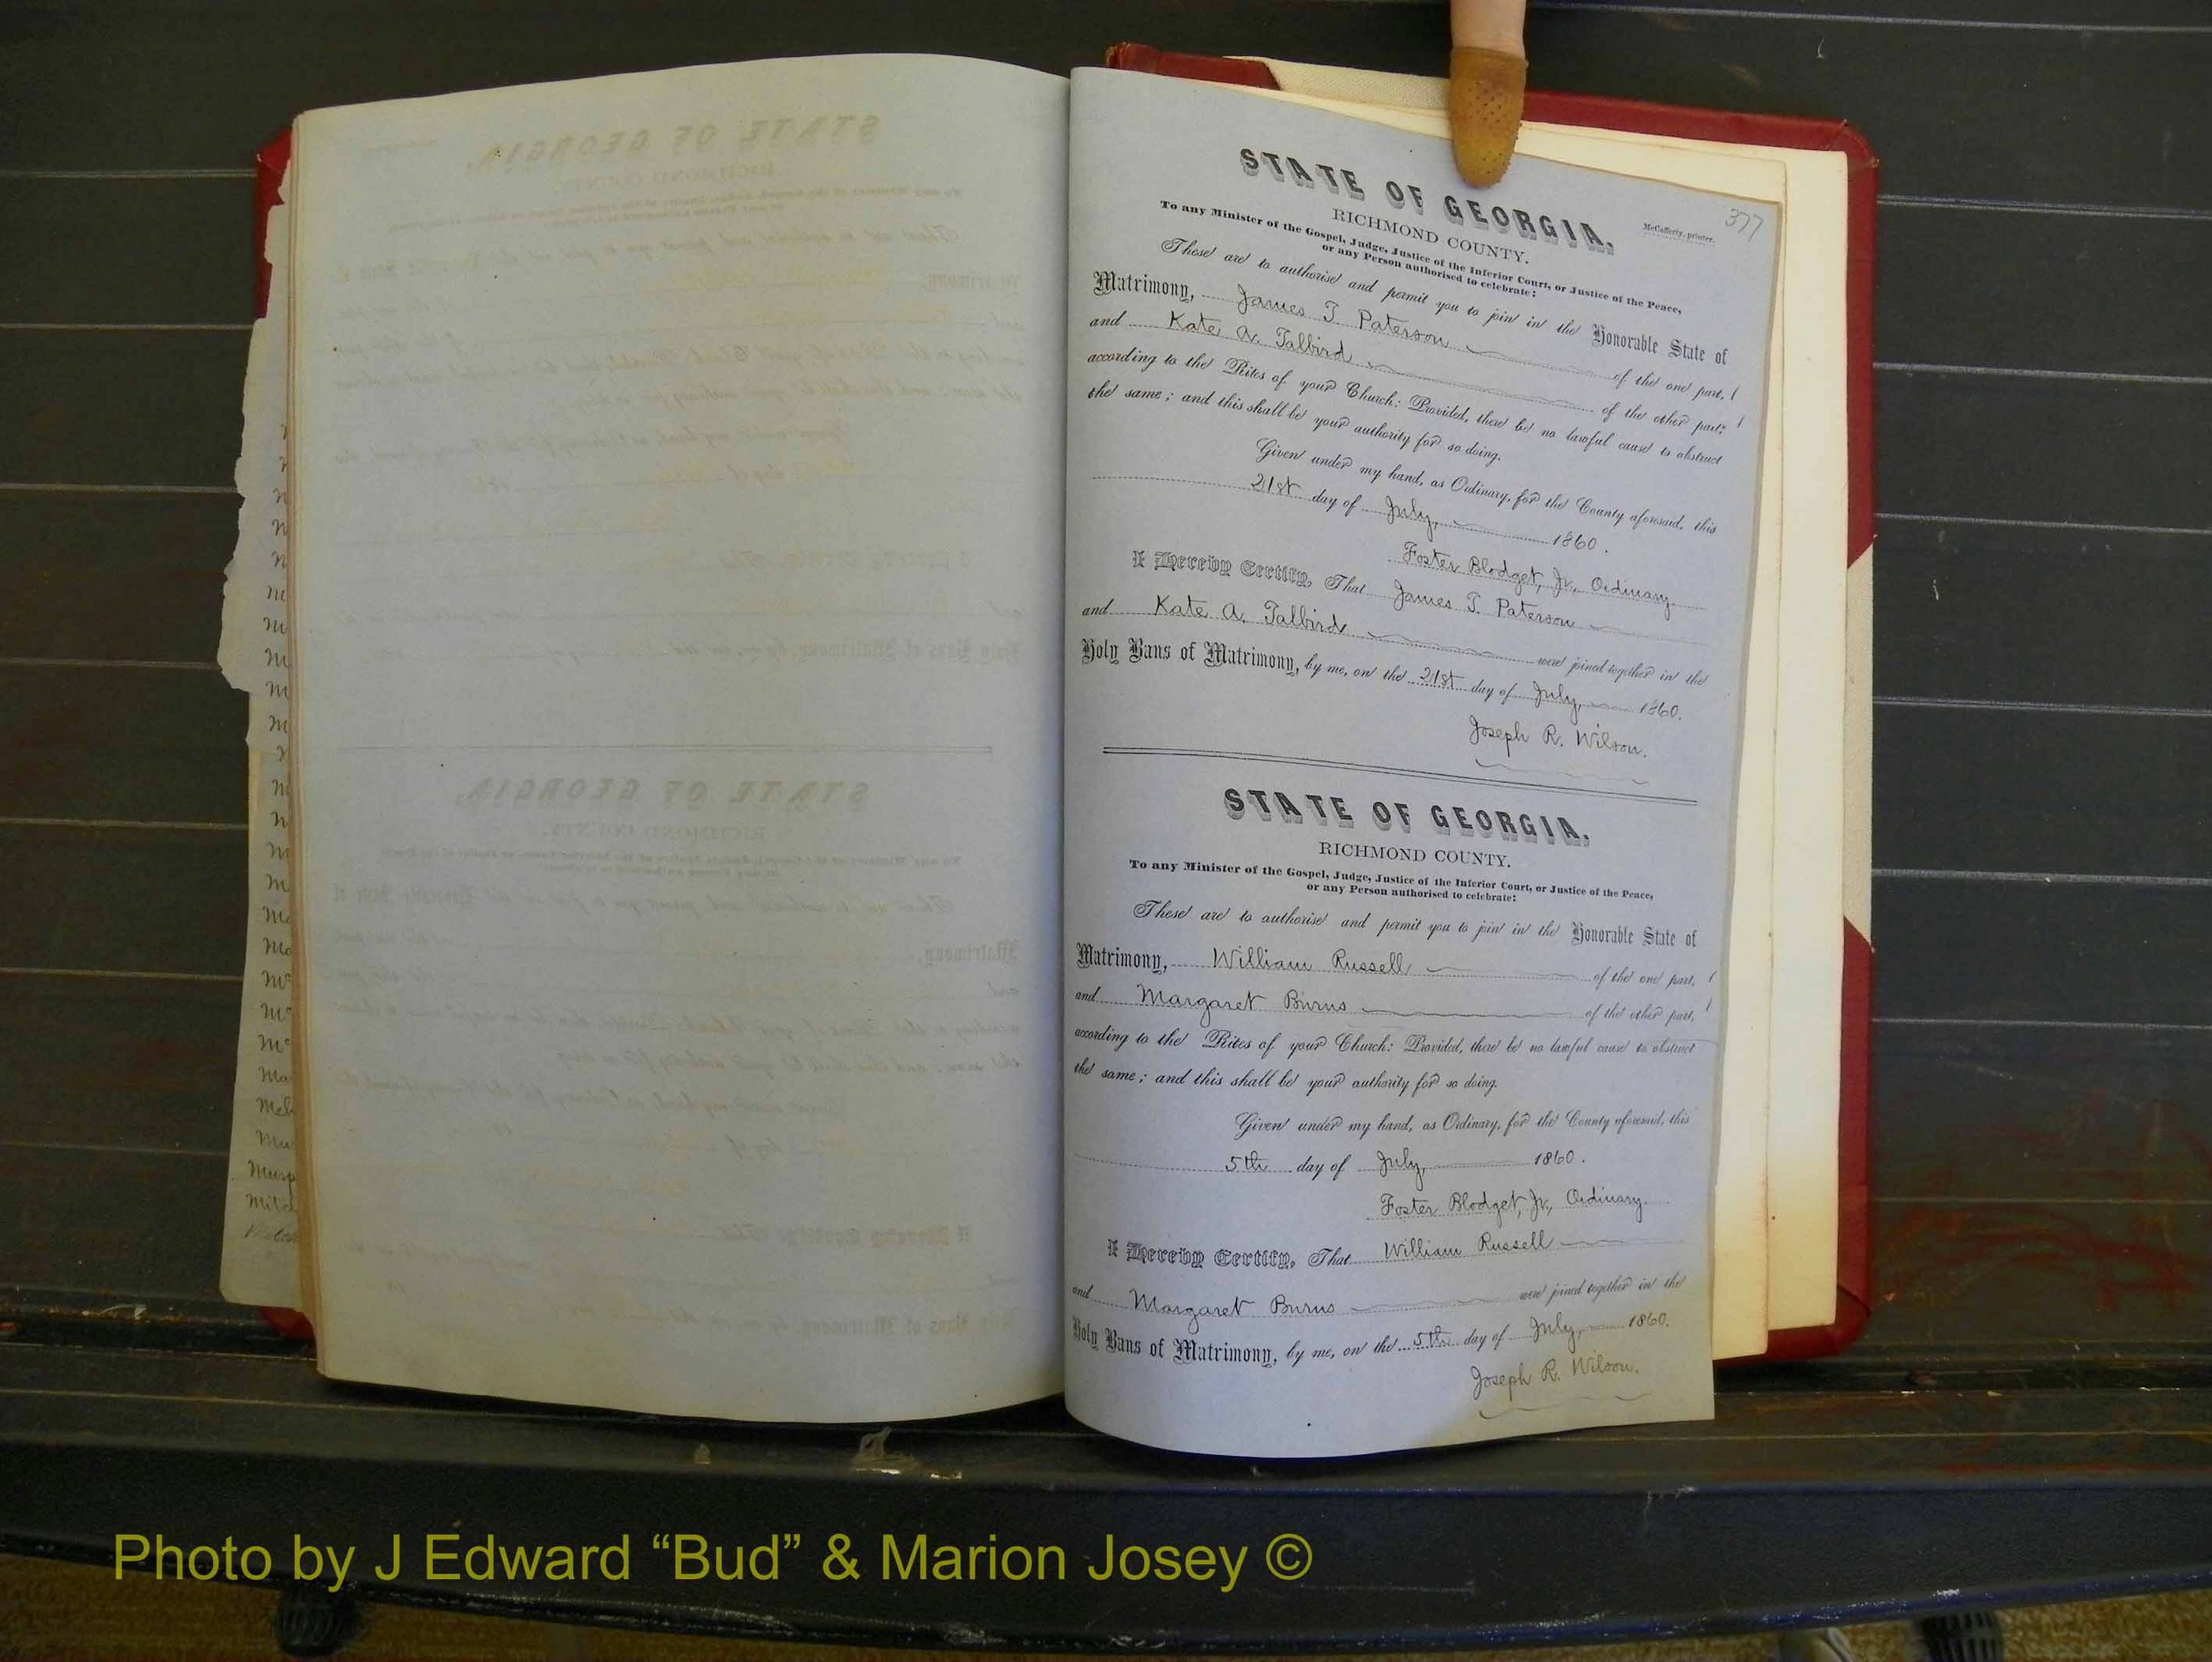 377
McCafferty, printer.
STATE OF GEORGIA,
RICHMOND COUNTY.
To any Minister of the Gospel, Judge, Justice of the Inferior Court, or Justice of the Peace,
or any Person authorised to celebrate:
These are to authorise and permit you to join in the Honorable State of
Matrimony, James T Paterson of the one part,
and Kate A. Talbird of the other part;
according to the Rites of your Church: Provided, there be no lawful cause to obstruct
the same; and this shall be your authority for so doing.
Given under my hand, as Ordinary, for the County aforesaid, this
21st day of July, 1860.
Foster Blodget, Jr., Ordinary.
I Hereby Certify, That James T. Paterson
and Kate A. Talbird were joined together in the
Holy Bans of Matrimony, by me, on the 21st day of July, 1860.
Joseph R. Wilson.
STATE OF GEORGIA,
RICHMOND COUNTY.
To any Minister of the Gospel, Judge, Justice of the Inferior Court, or Justice of the Peace,
or any Person authorised to celebrate:
These are to authorise and permit you to join in the Honorable State of
Matrimony, William Russell of the one part,
and Margaret Burns of the other part,
according to the Rites of your Church: Provided, there be no lawful cause to obstruct
the same; and this shall be your authority for so doing.
Given under my hand, as Ordinary, for the County aforesaid, this
5th day of July, 1860.
Foster Blodget, Jr., Ordinary.
I Hereby Certify, That William Russell
and Margaret Burns were joined together in the
Holy Bans of Matrimony, by me, on the 5th day of July, 1860.
Joseph R. Wilson.
Photo by J Edward “Bud” & Marion Josey ©